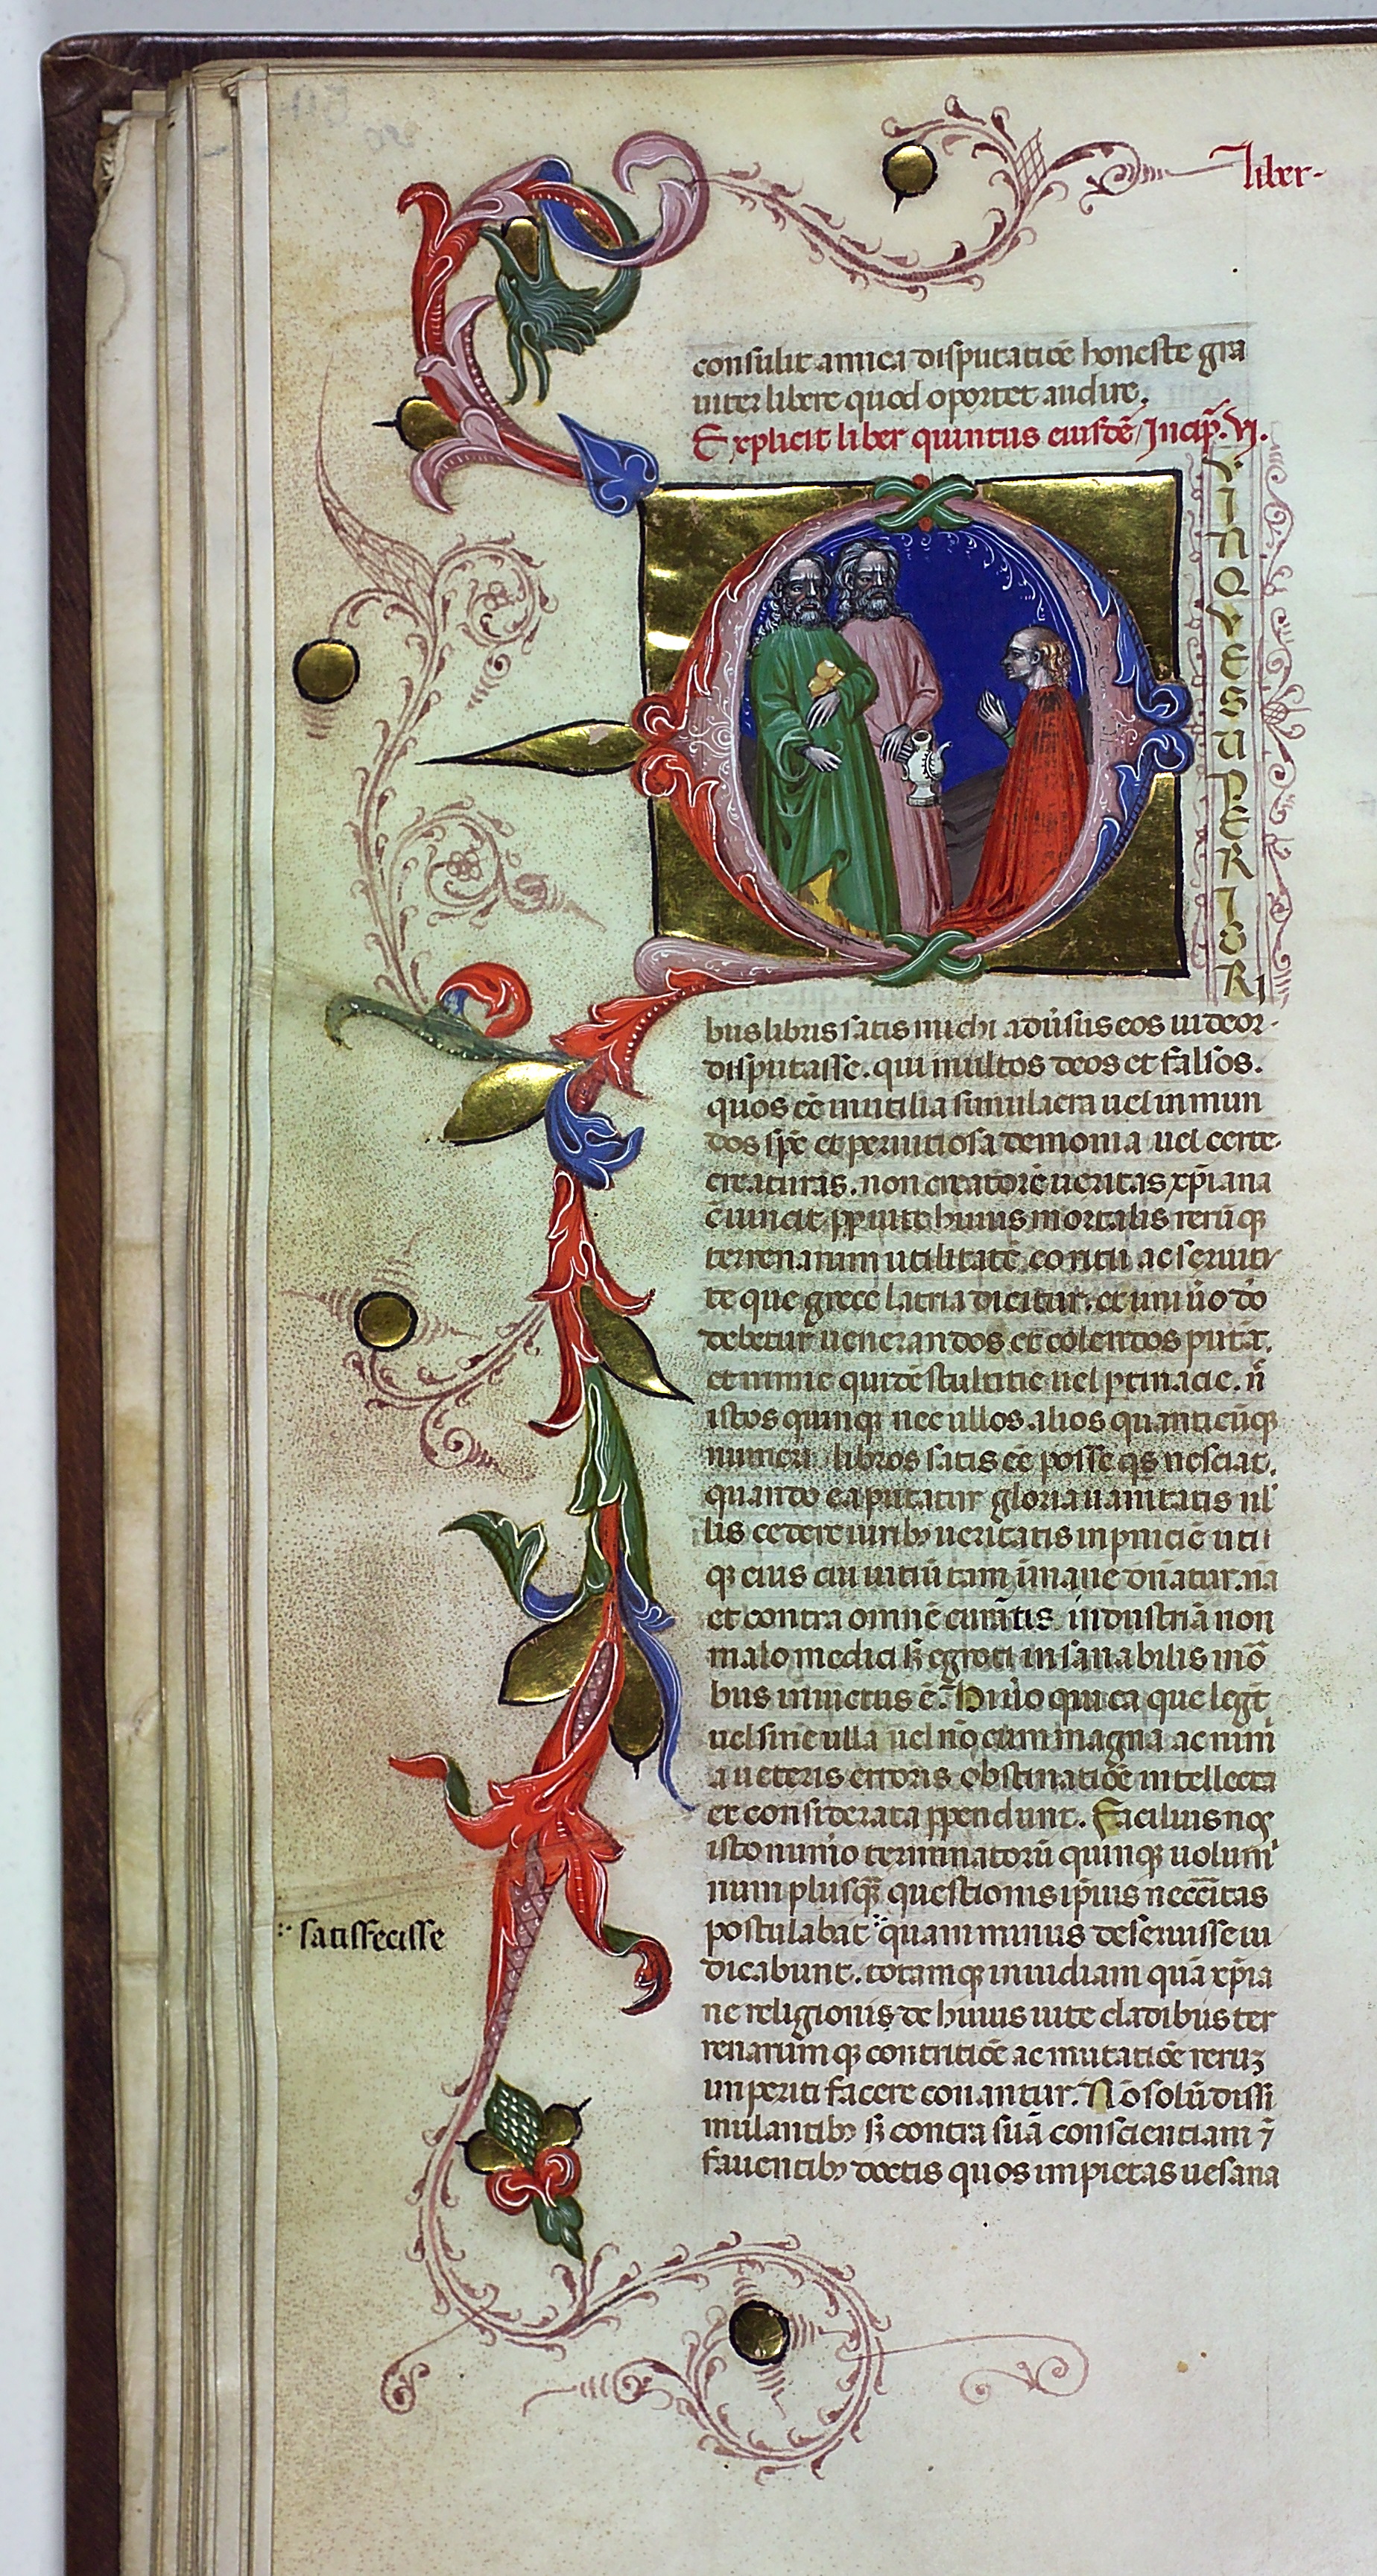 liber·
consulit amica disputatiōe honeste gra
uiter libere quod oportet audire.
Explicit liber quintus eiusdē Incip̄. VI.
VINQVESUPERIORI
bus libris satis michi aduͥsus eos uideor·
disputasse. qui multos deos et falsos.
quos eē inutilia simulacra uel inmun
dos sp̄s et perniciosa demonia uel certe
creaturas. non creatorē ueritas xp̄iana
ꝯuincit ꝓpt̄ uite huius mortalis rerūqꝫ
terrenarum utilitatē eo ritu ac seruitu
te que grece latria dicitur. et uni ū̓o dō
debetur uenerandos et colendos putāt.
et nimie quidē stultitie uel ꝑtinacie. n̄
istos quinqꝫ nec ullos alios quanticūqꝫ
numeri libros satis eē posse qͥs nesciat.
quando ea putatur gloria uanitatis nl̄
lis cedere uiribꝫ ueritatis in ꝑniciē uti
qꝫ eius cui uitiū tam īmane dn̄atur. nā
et contra omnē curātis industriā non
malo medici sꝫ egroti insanabilis mor
bus inuictus ē. Hii ūo qui ea que legūt
uel sine ulla uel nō cum magna ac nimi
a ueteris erroris obstinatiōe intellecta
et considerata ꝑpendunt. Facilius nos
isto numͦo terminatorū quinqꝫ uolumi
num plusqͣꝫ questionis ip̄ius necc̄itas
postulabat ·̈ quam minus deseruisse iu
·̈ satisfecisse
dicabunt. totamqꝫ inuidiam quā xp̄ia
ne religionis de huius uite cladibus ter
renarumqꝫ contritiōe ac mutatiōe reruꝫ
imperiti facere conantur. Nō solū dissi
mulantibꝫ sꝫ contra suā conscientiam ⁊
fauentibꝫ doctis quos impietas uesana